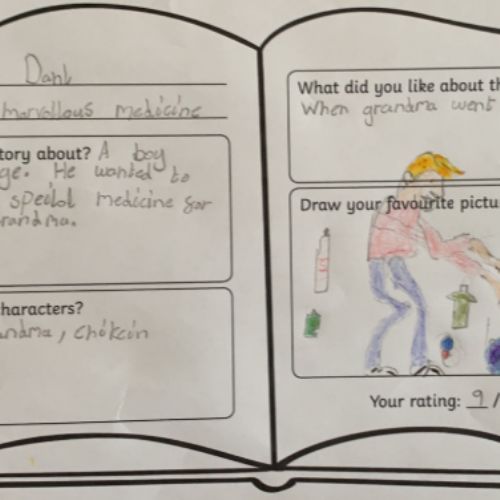 Dahl
marvollous medicine
tory about? A boy
ge. He wanted to
special medicine for
randma.
haracters?
andma, chikcin
What did you like about th
When grandma went
Draw your favourite pictu
Your rating: 9/